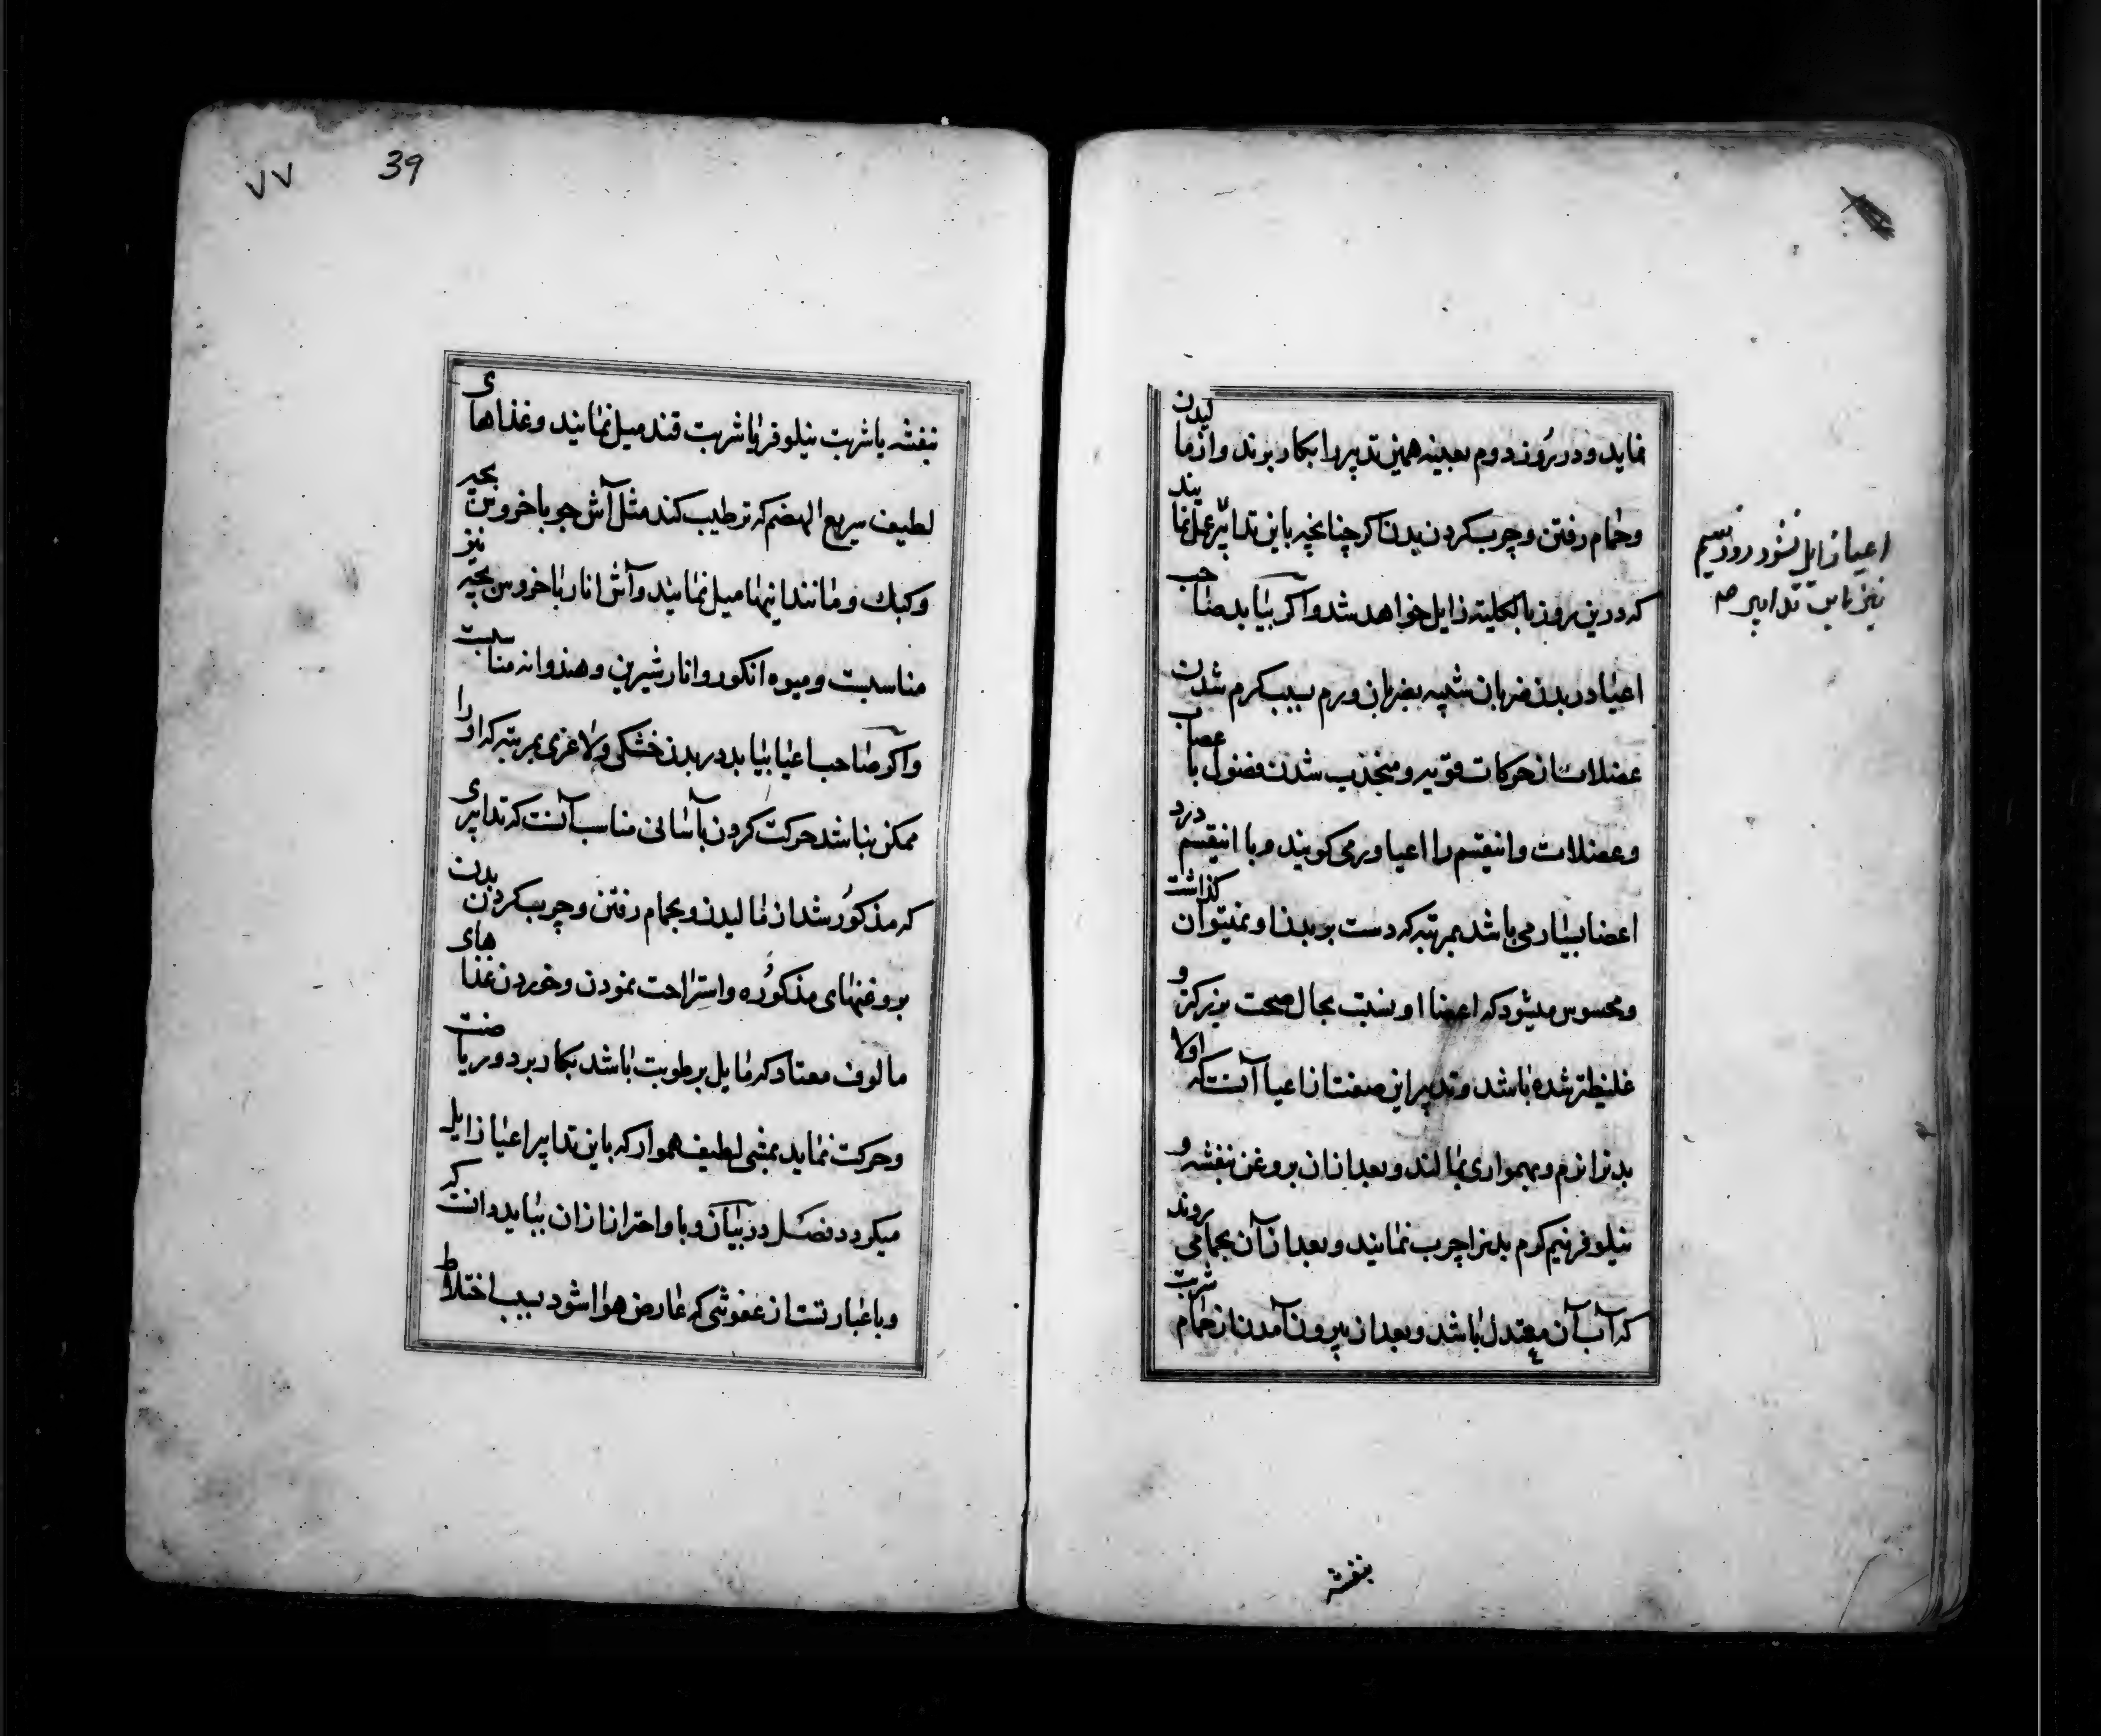 نماید و در روز دوم بعینه همین تدبیر را بکار برند و از مالیدن
و حمام رفتن و چرب کردن بدن اکر چنانچه باین تدابیر عمل نمایند
که درین روز بالکلیه زایل خواهد شد و اکر بیابد صاحب
اعیا در بدن ضربان شبیه بضربان ورم بسبب کرم شدن
عضلات از حرکات قویه و منجذب شدن فضول باعصاب
و عضلات و اینقسم را اعیا ورمی کویند و با اینقسم درد
اعضا بسیار می باشد بمرتبه که دست بر بدن او نمیتوان کذاشت
و محسوس میشود که اعضا او نسبت بحال صحت بزرکتر و
غلیظتر شده باشد و تدبیر این صفت از اعیا آنست که اولا
بدنرا نرم و بهمواری بمالند و بعد از ان بروغن بنفشه و
نیلوفر نیم کرم بدنرا چرب نمایند و بعد از آن بحمامی روند
که آب آن معتدل باشد و بعد از بیرون آمدن از حمام شربت
بنفشه
اعیا زایل نشود روز سیم
نیز باین تدابیر
39
۷۷
بنفشه یا شربت نیلوفر یا شربت قند میل نمایند و غذاهای
لطیف سریع الهضم که ترطیب کند مثل آش جو با خروس بچه
و کبک و مانند اینها میل نمایند و آش انار با خروس بچه نیز
مناسبت و میوه انکور و انار شیرین و هندوانه مناسبت
و اکر صاحب اعیا بیابد در بدن خشکی و لاغری بمرتبه که او را
ممکن نباشد حرکت کردن بآسانی مناسب آنست که تدابیری
که مذکور شد از مالیدن و بحمام رفتن و چرب کردن بدن
بروغنهای مذکوره و استراحت نمودن و خوردن غذاهای
مالوف معتاد که مایل برطوبت باشد بکار برد و ریاضت
و حرکت نماید بمشی لطیف هموار که باین تدابیر اعیا زایل
میکردد فصل در بیان وبا و احتراز از ان بباید دانست که
وبا عبارتست از عفونتی که عارض هوا شود بسبب اختلاط